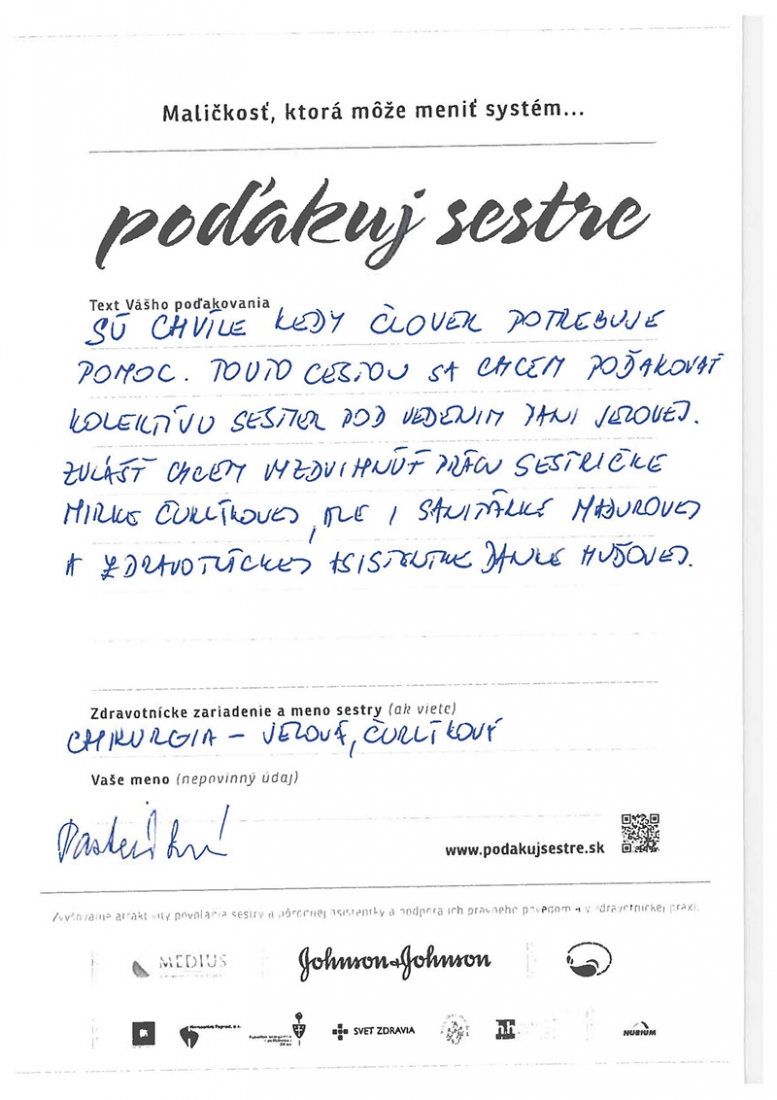 Maličkosť, ktorá môže meniť systém...
poďakuj sestre
Text Vášho poďakovania
SÚ CHVÍLE KEDY ČLOVEK POTREBUJE
POMOC. TOUTO CESTOU SA CHCEM POĎAKOVAŤ
KOLEKTÍVU SESTIER POD VEDENIM PANI JEŽOVEJ.
ZVLÁŠŤ CHCEM VYZDVIHNÚŤ PRÁCU SESTRIČKE
MIRKE ČURLÍKOVEJ, ALE I SANITÁRKE MADUROVEJ
A ZDRAVOTNÍCKEJ ASISTENTKE DANKE
Zdravotnícke zariadenie a meno sestry (ak viete)
CHIRURGIA – ČURLÍKOVÁ
Vaše meno (nepovinný údaj)
www.podakujsestre.sk
Zvyšovanie atraktivity povolania sestry a pôrodnej asistentky a podpora ich právneho povedomia v zdravotníckej praxi.
MEDIUS
Johnson & Johnson
SVET ZDRAVIA
hh
NUBIUM